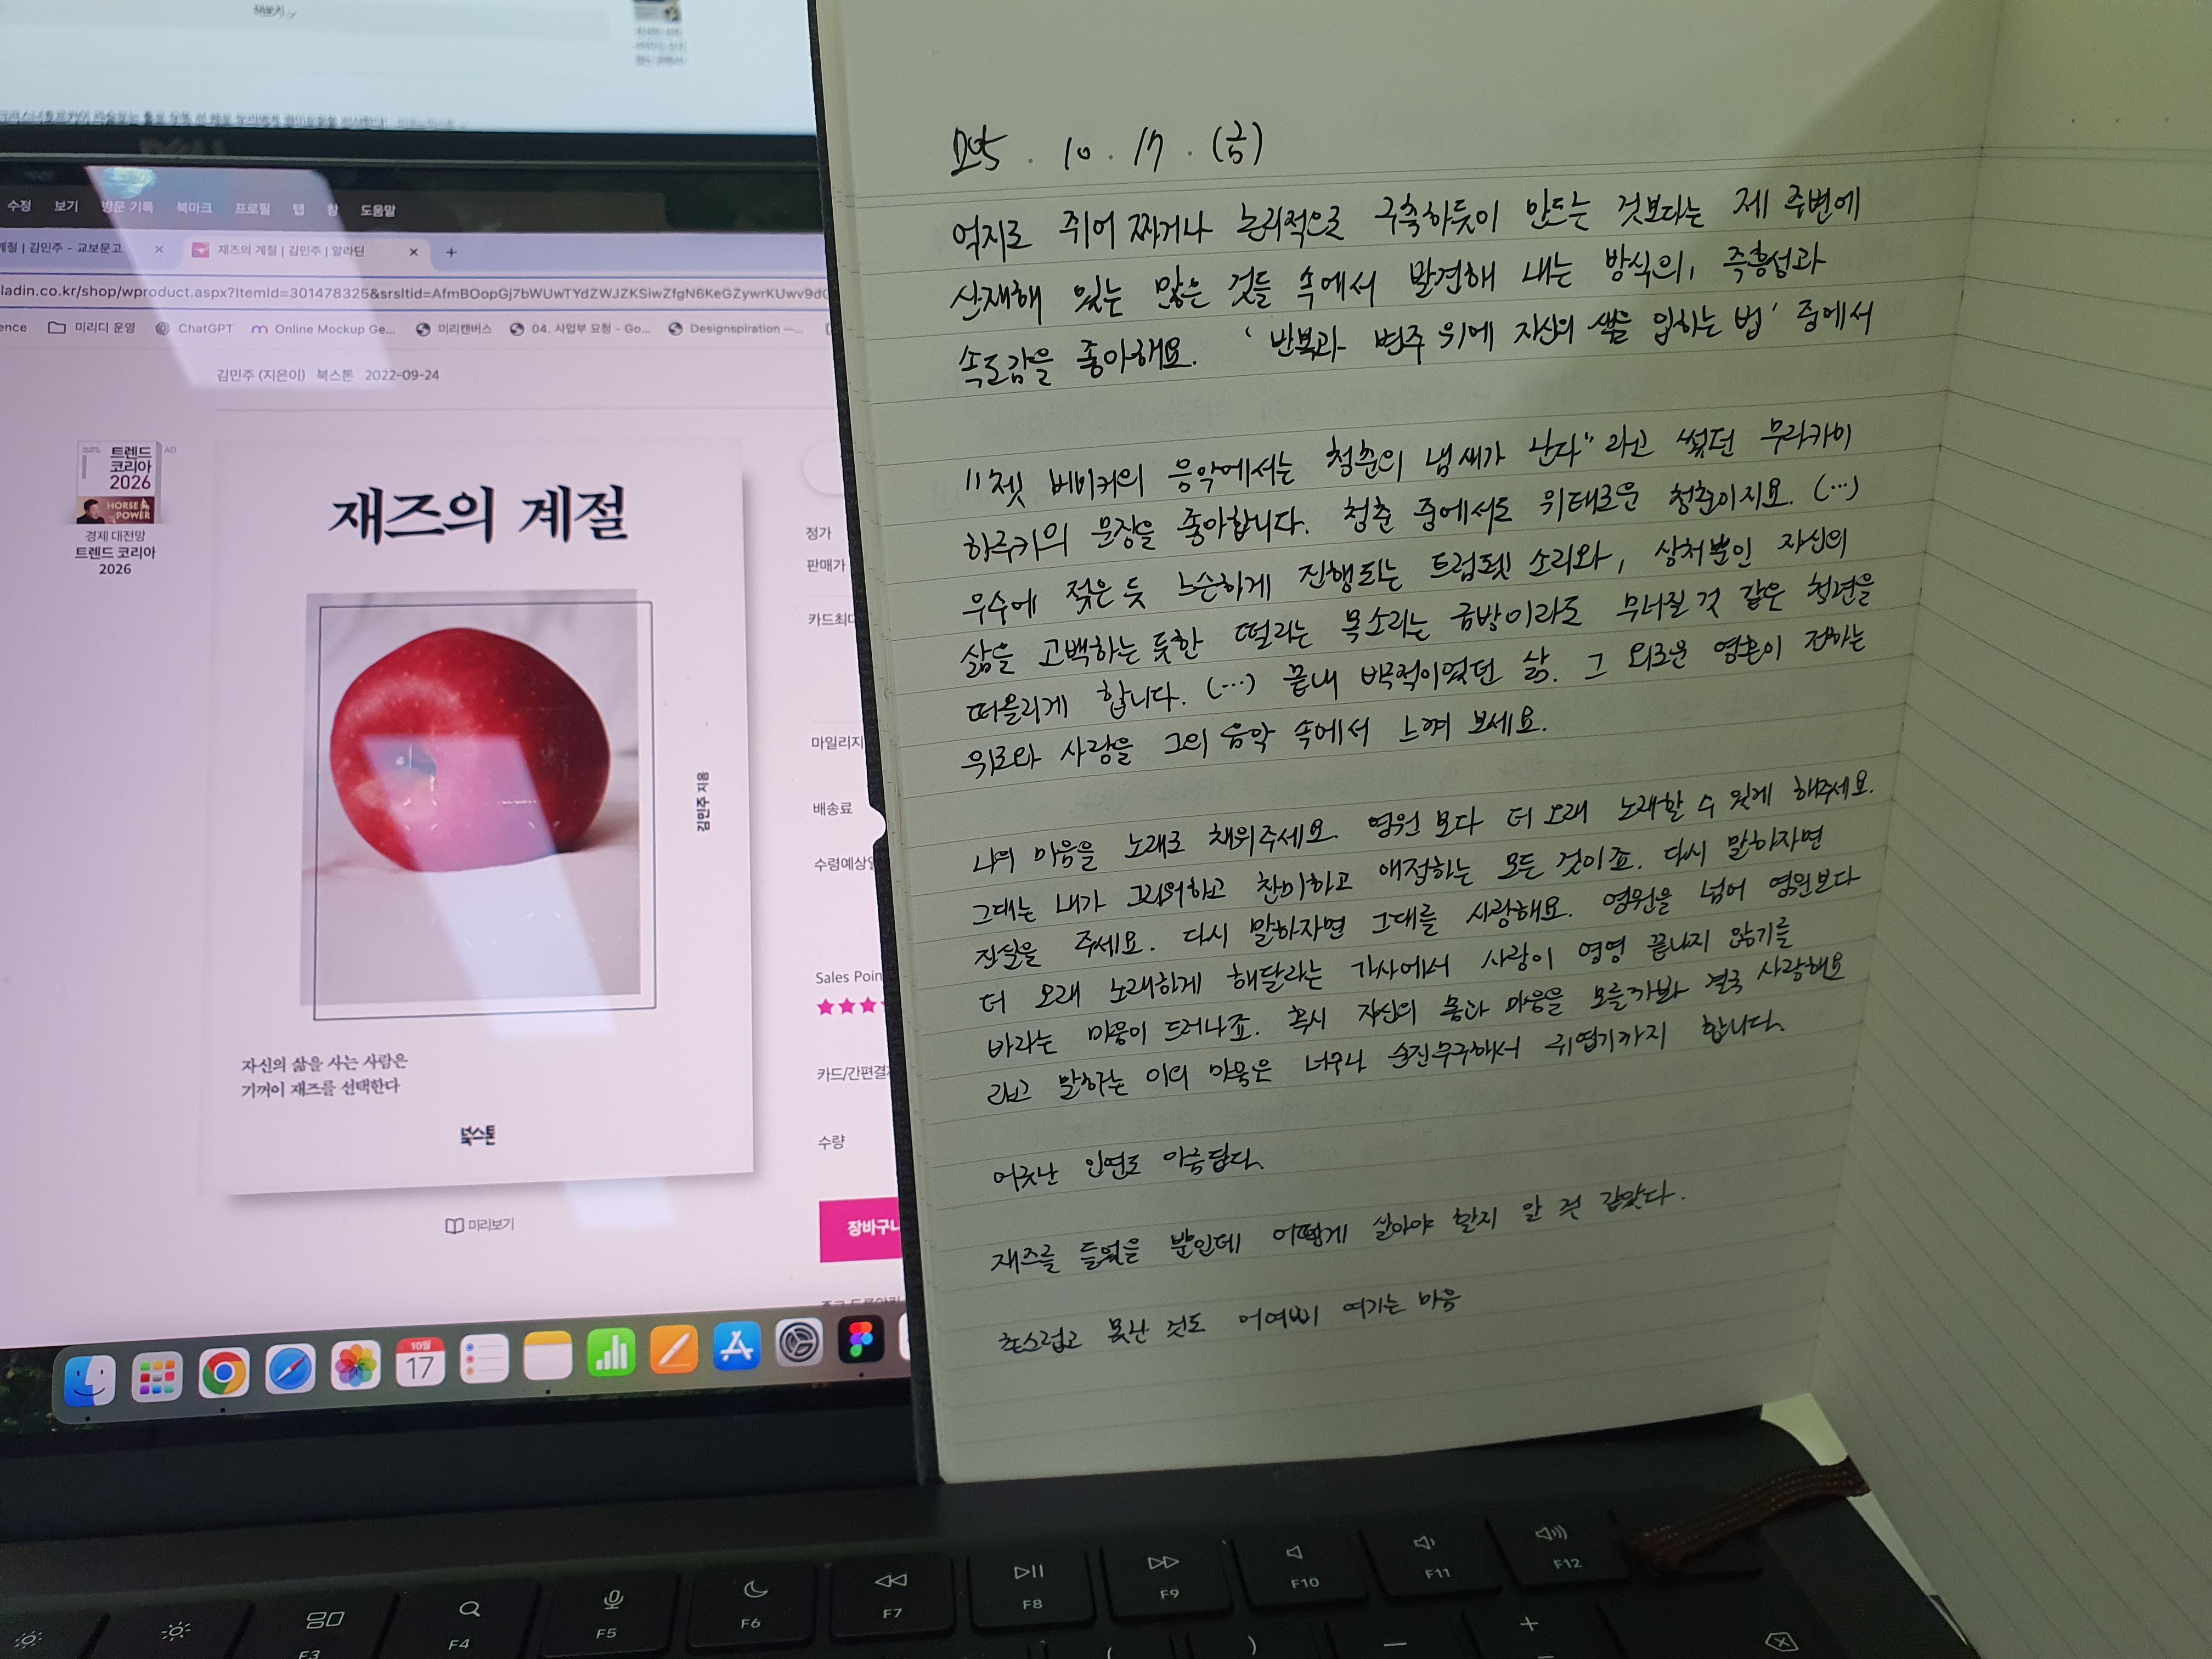 수정 보기 방문 기록 북마크 프로필 탭 창 도움말
계절 | 김민주 - 교보문고 × 재즈의 계절 | 김민주 | 알라딘 × +
ladin.co.kr/shop/wproduct.aspx?ItemId=301478325&srsltid=
ence 미리디 운영 ChatGPT Online Mockup Ge... 미리캔버스 04. 사업부 요청 - Go... Designspiration —...
김민주 (지은이) 북스톤 2022-09-24
트렌드
코리아
2026
HORSE
POWER
AD
경제 대전망
트렌드 코리아
2026
재즈의 계절
김민주 지음
자신의 삶을 사는 사람은
기꺼이 재즈를 선택한다
북스톤
미리보기
정가
판매가
카드최대
마일리지
배송료
수령예상일
Sales Poin
★★★
카드/간편결제
수량
장바구니
10월
17
2025. 10. 17. (금)
억지로 쥐어 짜거나 논리적으로 구축하듯이 만드는 것보다는 제 주변에
산재해 있는 많은 것들 속에서 발견해 내는 방식의, 즉흥성과
속도감을 좋아해요. '반복과 변주 위에 자신의 색을 입히는 법' 중에서
"쳇 베이커의 음악에서는 청춘의 냄새가 난다"라고 썼던 무라카미
하루키의 문장을 좋아합니다. 청춘 중에서도 위태로운 청춘이지요. (…)
우수에 젖은 듯 느슨하게 진행되는 트럼펫 소리와, 상처뿐인 자신의
삶을 고백하는 듯한 떨리는 목소리는 금방이라도 무너질 것 같은 청년을
떠올리게 합니다. (…) 끝내 비극적이었던 삶. 그 외로운 영혼이 전하는
위로와 사랑을 그의 음악 속에서 느껴 보세요.
나의 마음을 노래로 채워주세요. 영원 보다 더 오래 노래할 수 있게 해주세요.
그대는 내가 그리워하고 찬미하고 애정하는 모든 것이죠. 다시 말하자면
진실을 주세요. 다시 말하자면 그대를 사랑해요. 영원을 넘어 영원보다
더 오래 노래하게 해달라는 가사에서 사랑이 영영 끝나지 않기를
바라는 마음이 드러나죠. 혹시 자신의 몸과 마음을 모를까봐 결국 사랑해요
라고 말하는 이의 마음은 너무나 순진무구해서 귀엽기까지 합니다.
어긋난 인연도 아름답다.
재즈를 들었을 뿐인데 어떻게 살아야 할지 알 것 같았다.
촌스럽고 못난 것도 어여삐 여기는 마음
F3 F4 F5 F6 F7 F8 F9 F10 F11 F12